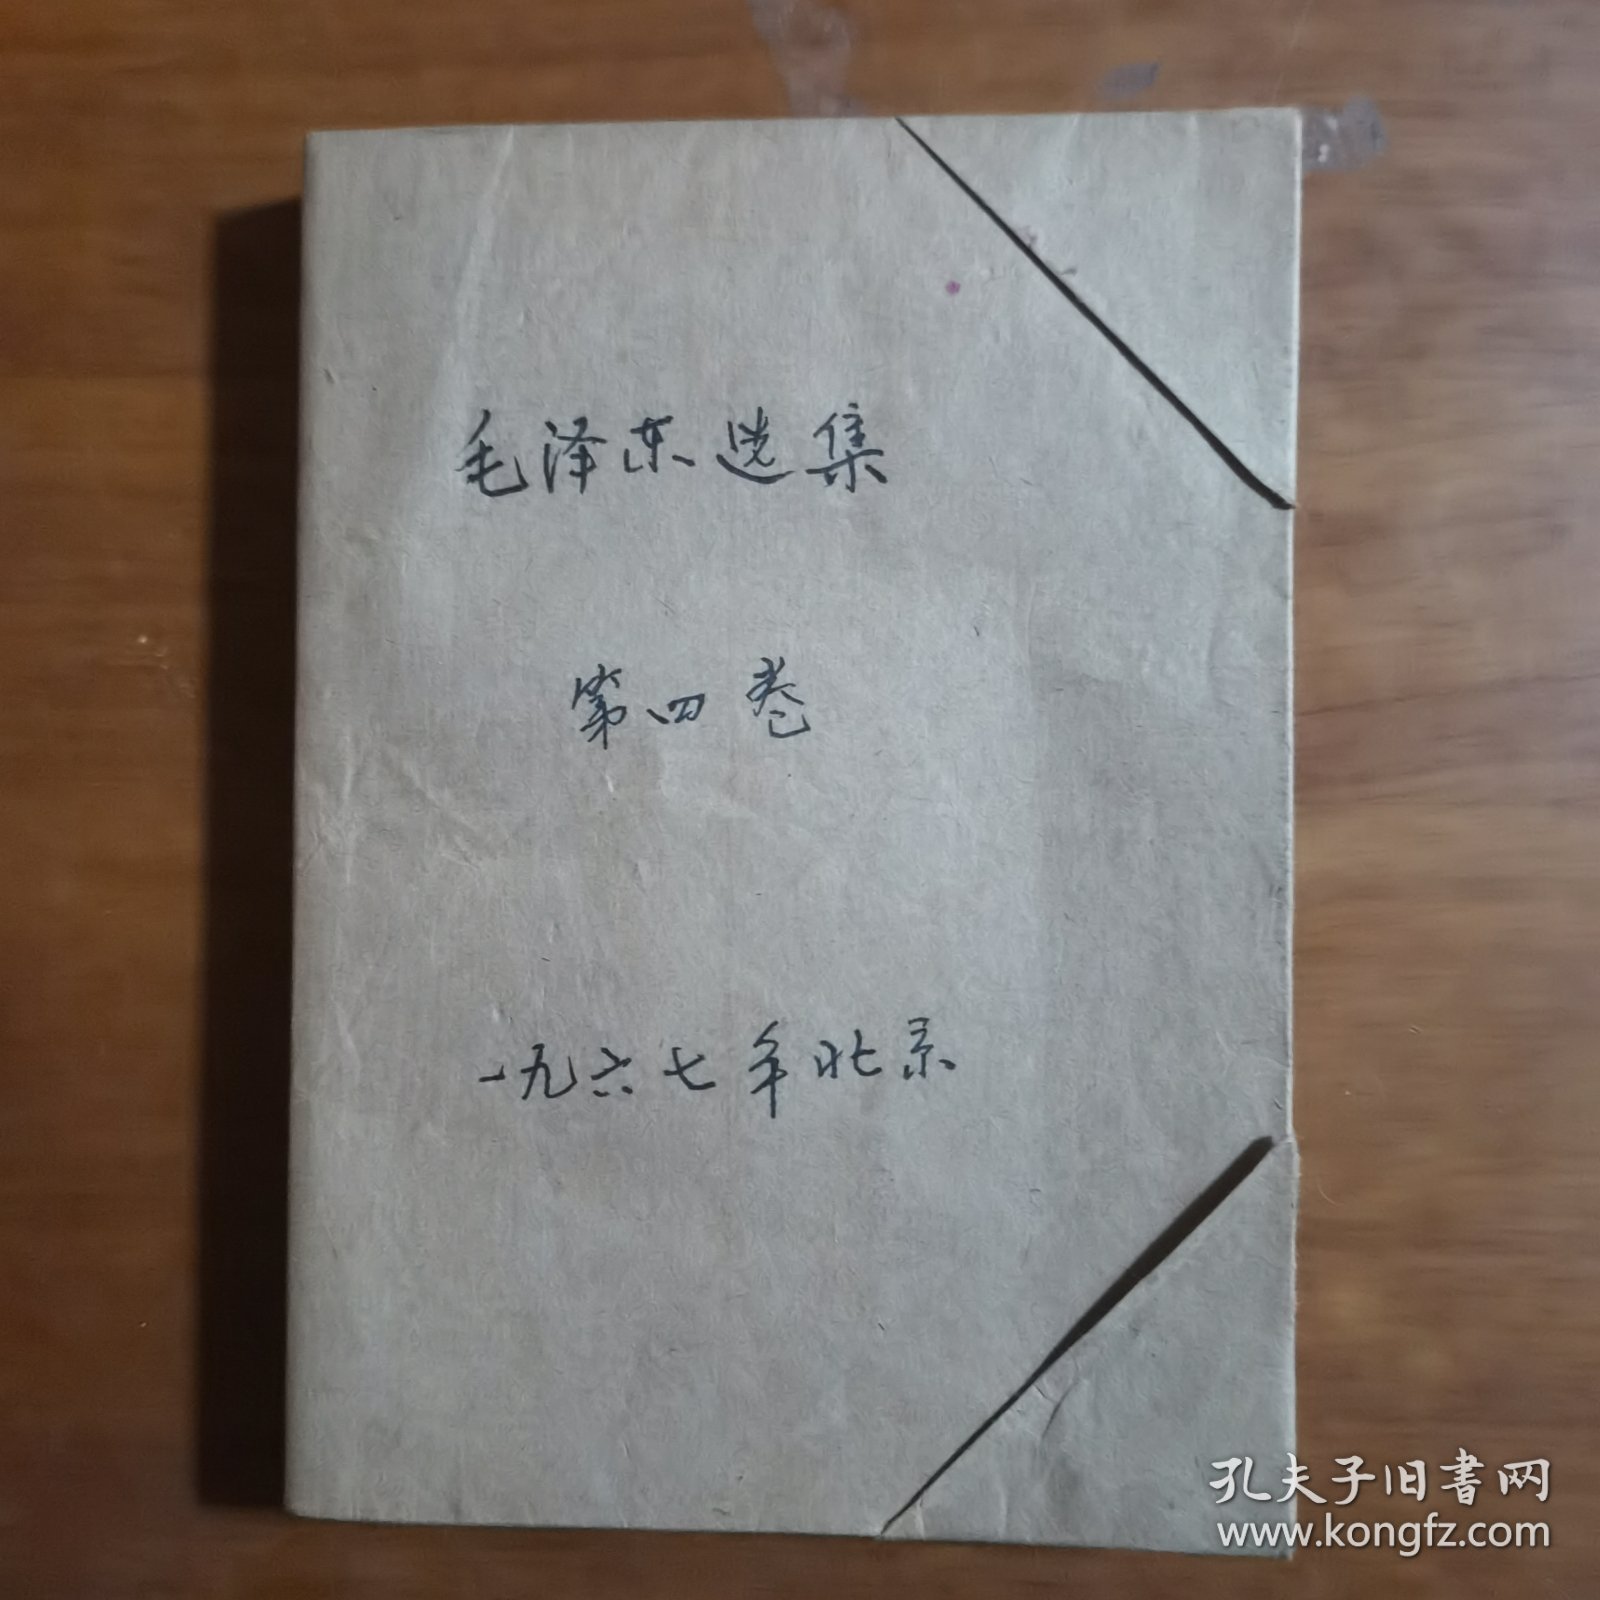 毛泽东选集
第四卷
一九六七年北京
孔夫子旧书网
www.kongfz.com